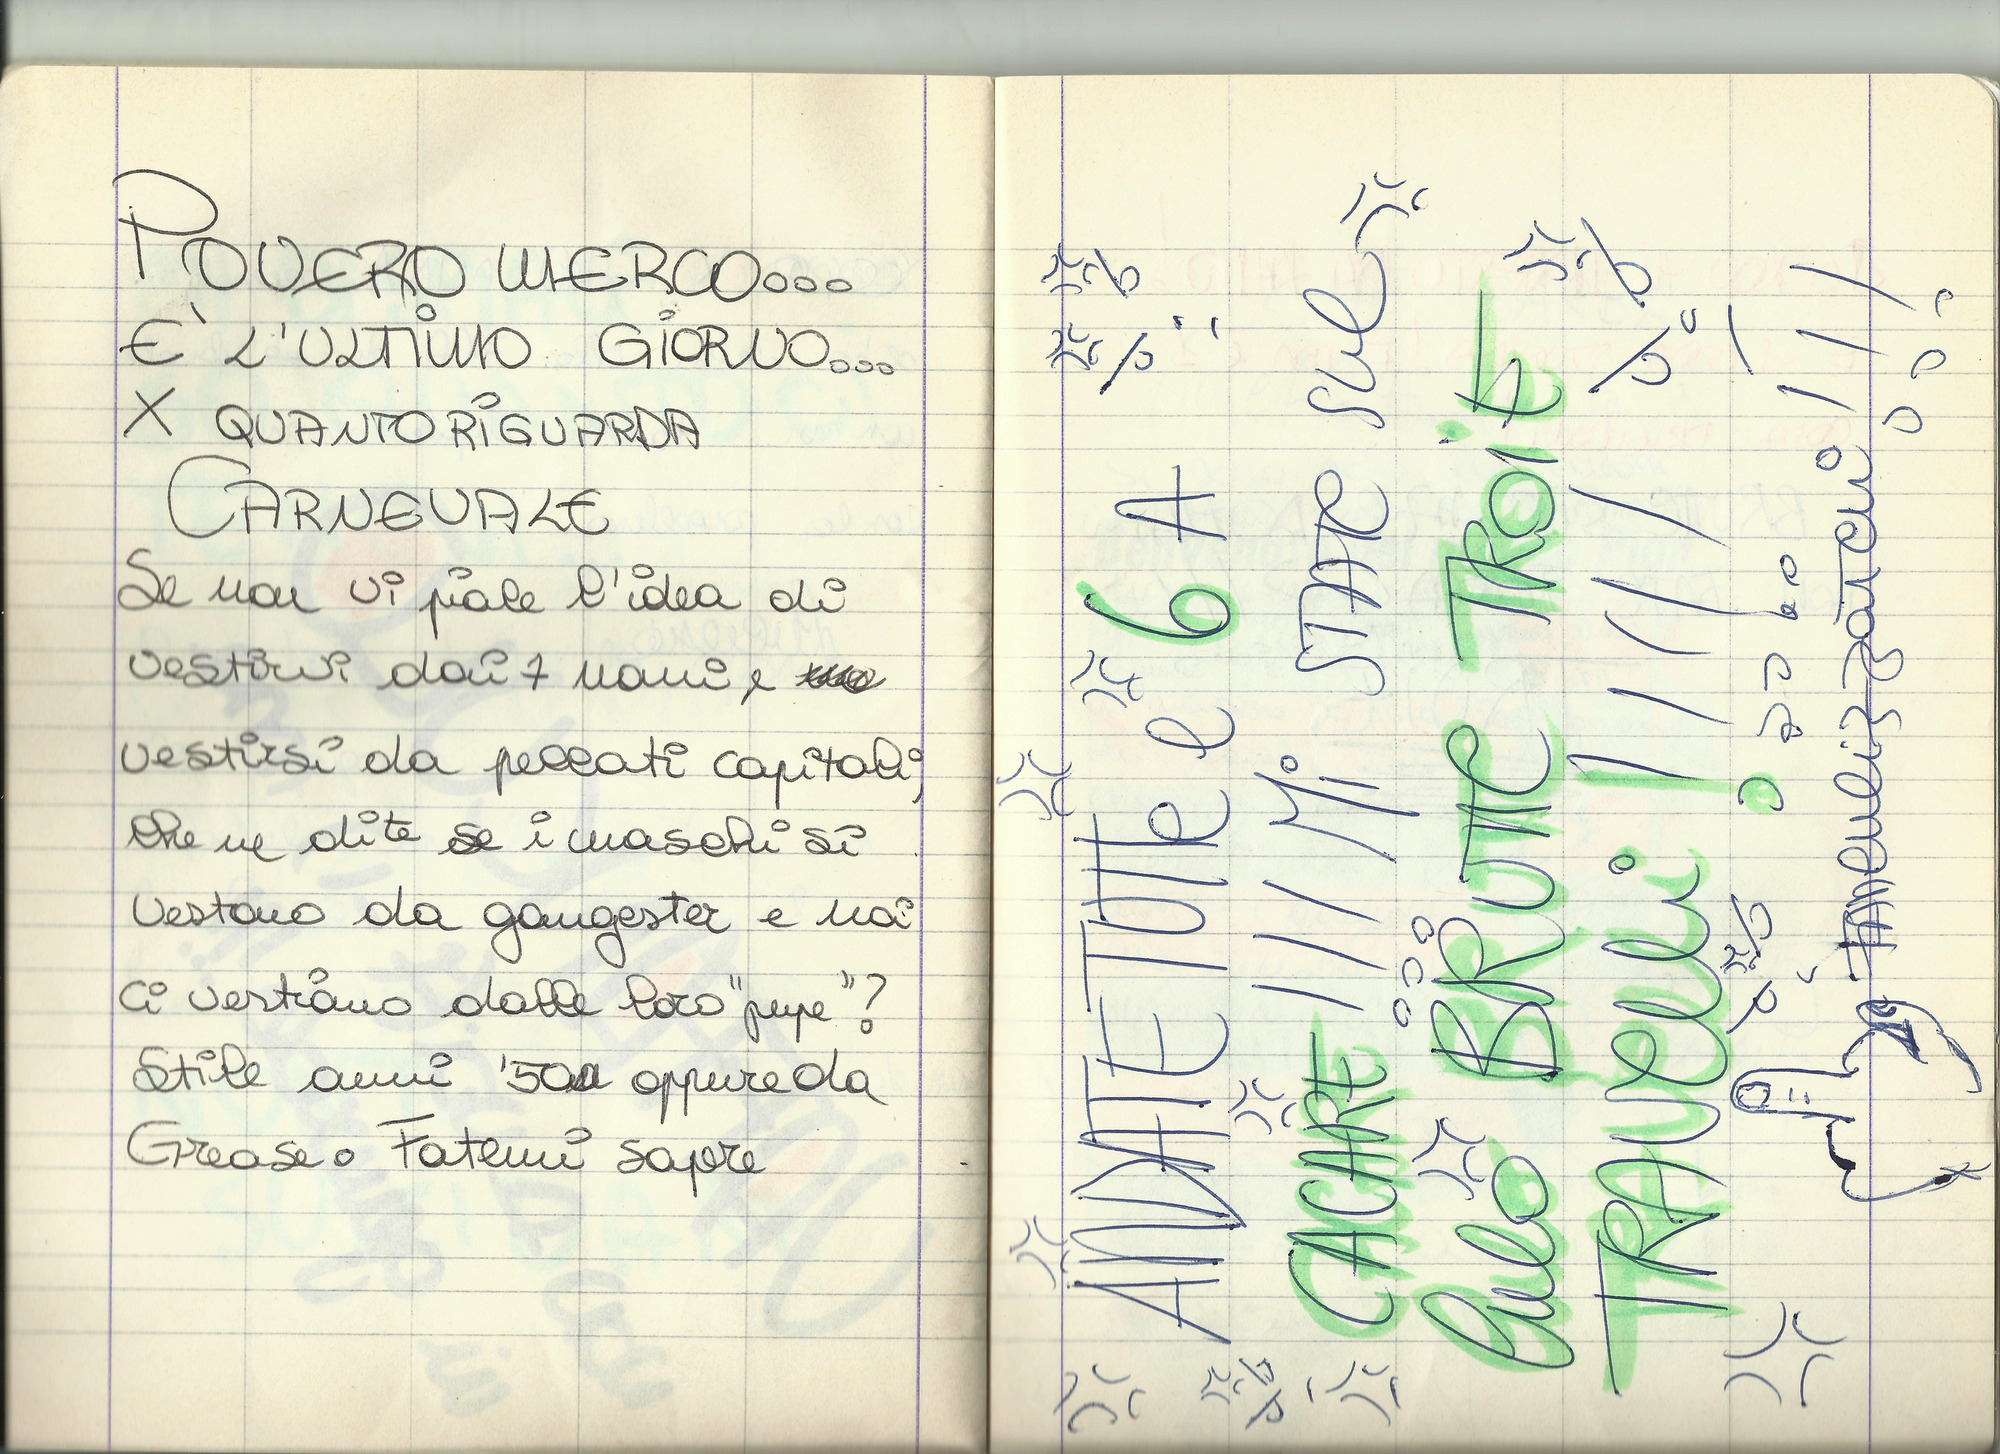 POVERO MERCO...
E' L'ULTIMO GIORNO...
X QUANTO RIGUARDA
CARNEVALE
Se non vi piace l'idea di
vestirvi dai 7 nani e
vestirsi da peccati capitali,
che ne dite se i maschi si
vestono da gangester e noi
ci vestiamo dalle loro "pupe"?
Stile anni '50 oppure da
Grease. Fatemi sapere
ANDATE TUTTE e 6 A
CAGARE //// Mi STATE sul
Culo BRUTTE TROiE
TRAVelli! /////